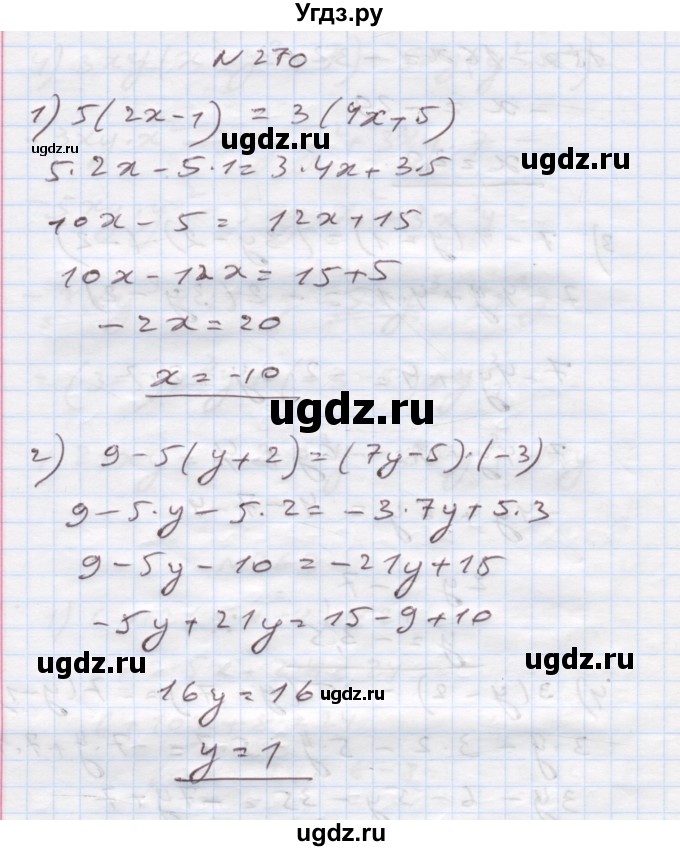 Угдз.ру
N 270
1) 5(2x-1) = 3(4x+5)
5·2x-5·1=3·4x+3·5
10x-5= 12x+15
10x-12x=15+5
-2x=20
x=-10
2) 9-5(y+2)=(7y-5)·(-3)
9-5·y-5·2=-3·7y+5·3
9-5y-10=-21y+15
-5y+21y=15-9+10
16y=16
y=1
ugdz.ru
ugdz.ru
ugdz.ru
ugdz.ru
ugdz.ru
ugdz.ru
ugdz.ru
ugdz.ru